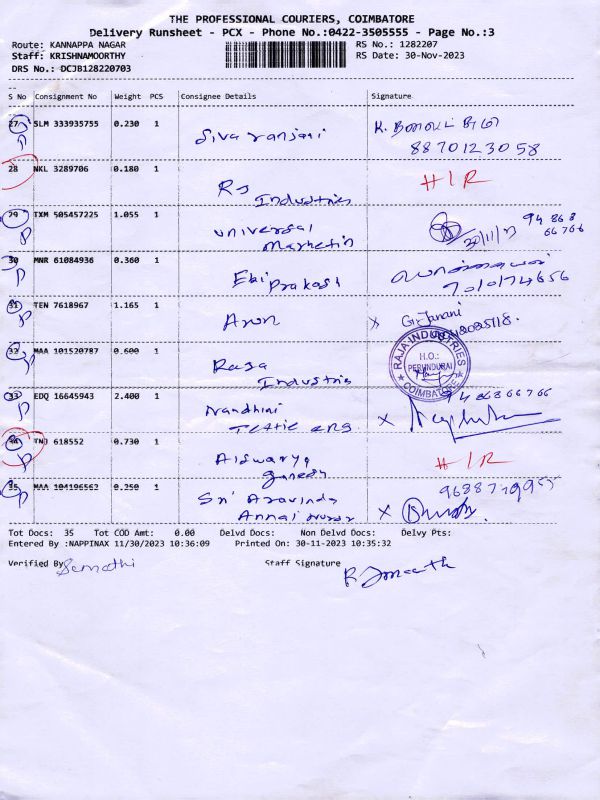 THE PROFESSIONAL COURIERS, COIMBATORE
Delivery Runsheet - PCX - Phone No.:0422-3505555 - Page No.:3
Route: KANNAPPA NAGAR RS No.: 1282207
Staff: KRISHNAMOORTHY RS Date: 30-Nov-2023
DRS No.: DCJB128220703
S No Consignment No Weight PCS Consignee Details Signature
27 SLM 333935755 0.230 1 Sivaranjani K.
8870123058
28 NKL 3289706 0.180 1 Rs Industries H/R
29 TXM 505457225 1.055 1 Universal Marketin 30/11/23 94 868 66766
30 MNR 61084936 0.360 1 Ebi Prakash
31 TEN 7618967 1.165 1 Arun x G. Janani
32 MAA 101520787 0.600 1 Raja Industries
RAJA INDUSTRIES
H.O.: PERUNDURAI
COIMBATORE
33 EDQ 16645943 2.400 1 Nandhini x 94 868 66766
34 TNJ 618552 0.730 1 Aiswarya ganesh H/R
35 MAA 104196562 0.250 1 Sri Aravinda Annai x
Tot Docs: 35 Tot COD Amt: 0.00 Delvd Docs: Non Delvd Docs: Delvy Pts:
Entered By :NAPPINAX 11/30/2023 10:36:09 Printed On: 30-11-2023 10:35:32
Verified By Staff Signature